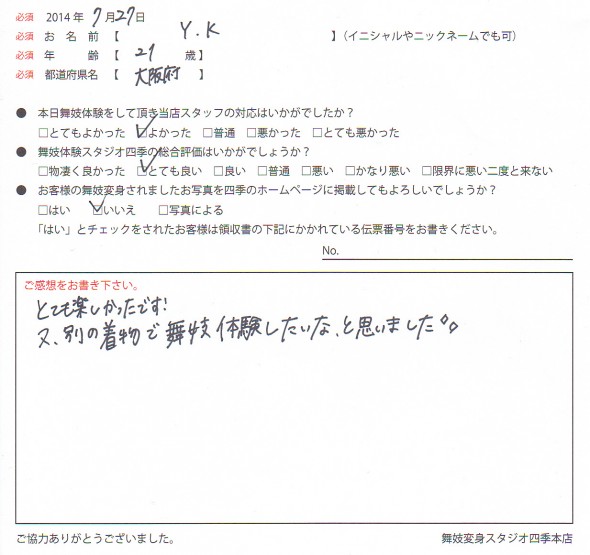 必須 2014年 7月27日
必須 お名前【 Y.K 】（イニシャルやニックネームでも可）
必須 年齢【 21 歳】
必須 都道府県名【 大阪府 】
● 本日舞妓体験をして頂き当店スタッフの対応はいかがでしたか？
□とてもよかった ☑よかった □普通 □悪かった □とても悪かった
● 舞妓体験スタジオ四季の総合評価はいかがでしょうか？
□物凄く良かった ☑とても良い □良い □普通 □悪い □かなり悪い □限界に悪い二度と来ない
● お客様の舞妓変身されましたお写真を四季のホームページに掲載してもよろしいでしょうか？
□はい ☑いいえ □写真による
「はい」とチェックをされたお客様は領収書の下記にかかれている伝票番号をお書きください。
No.
ご感想をお書き下さい。
とても楽しかったです!
又、別の着物で舞妓体験したいな、と思いました。
ご協力ありがとうございました。
舞妓変身スタジオ四季本店